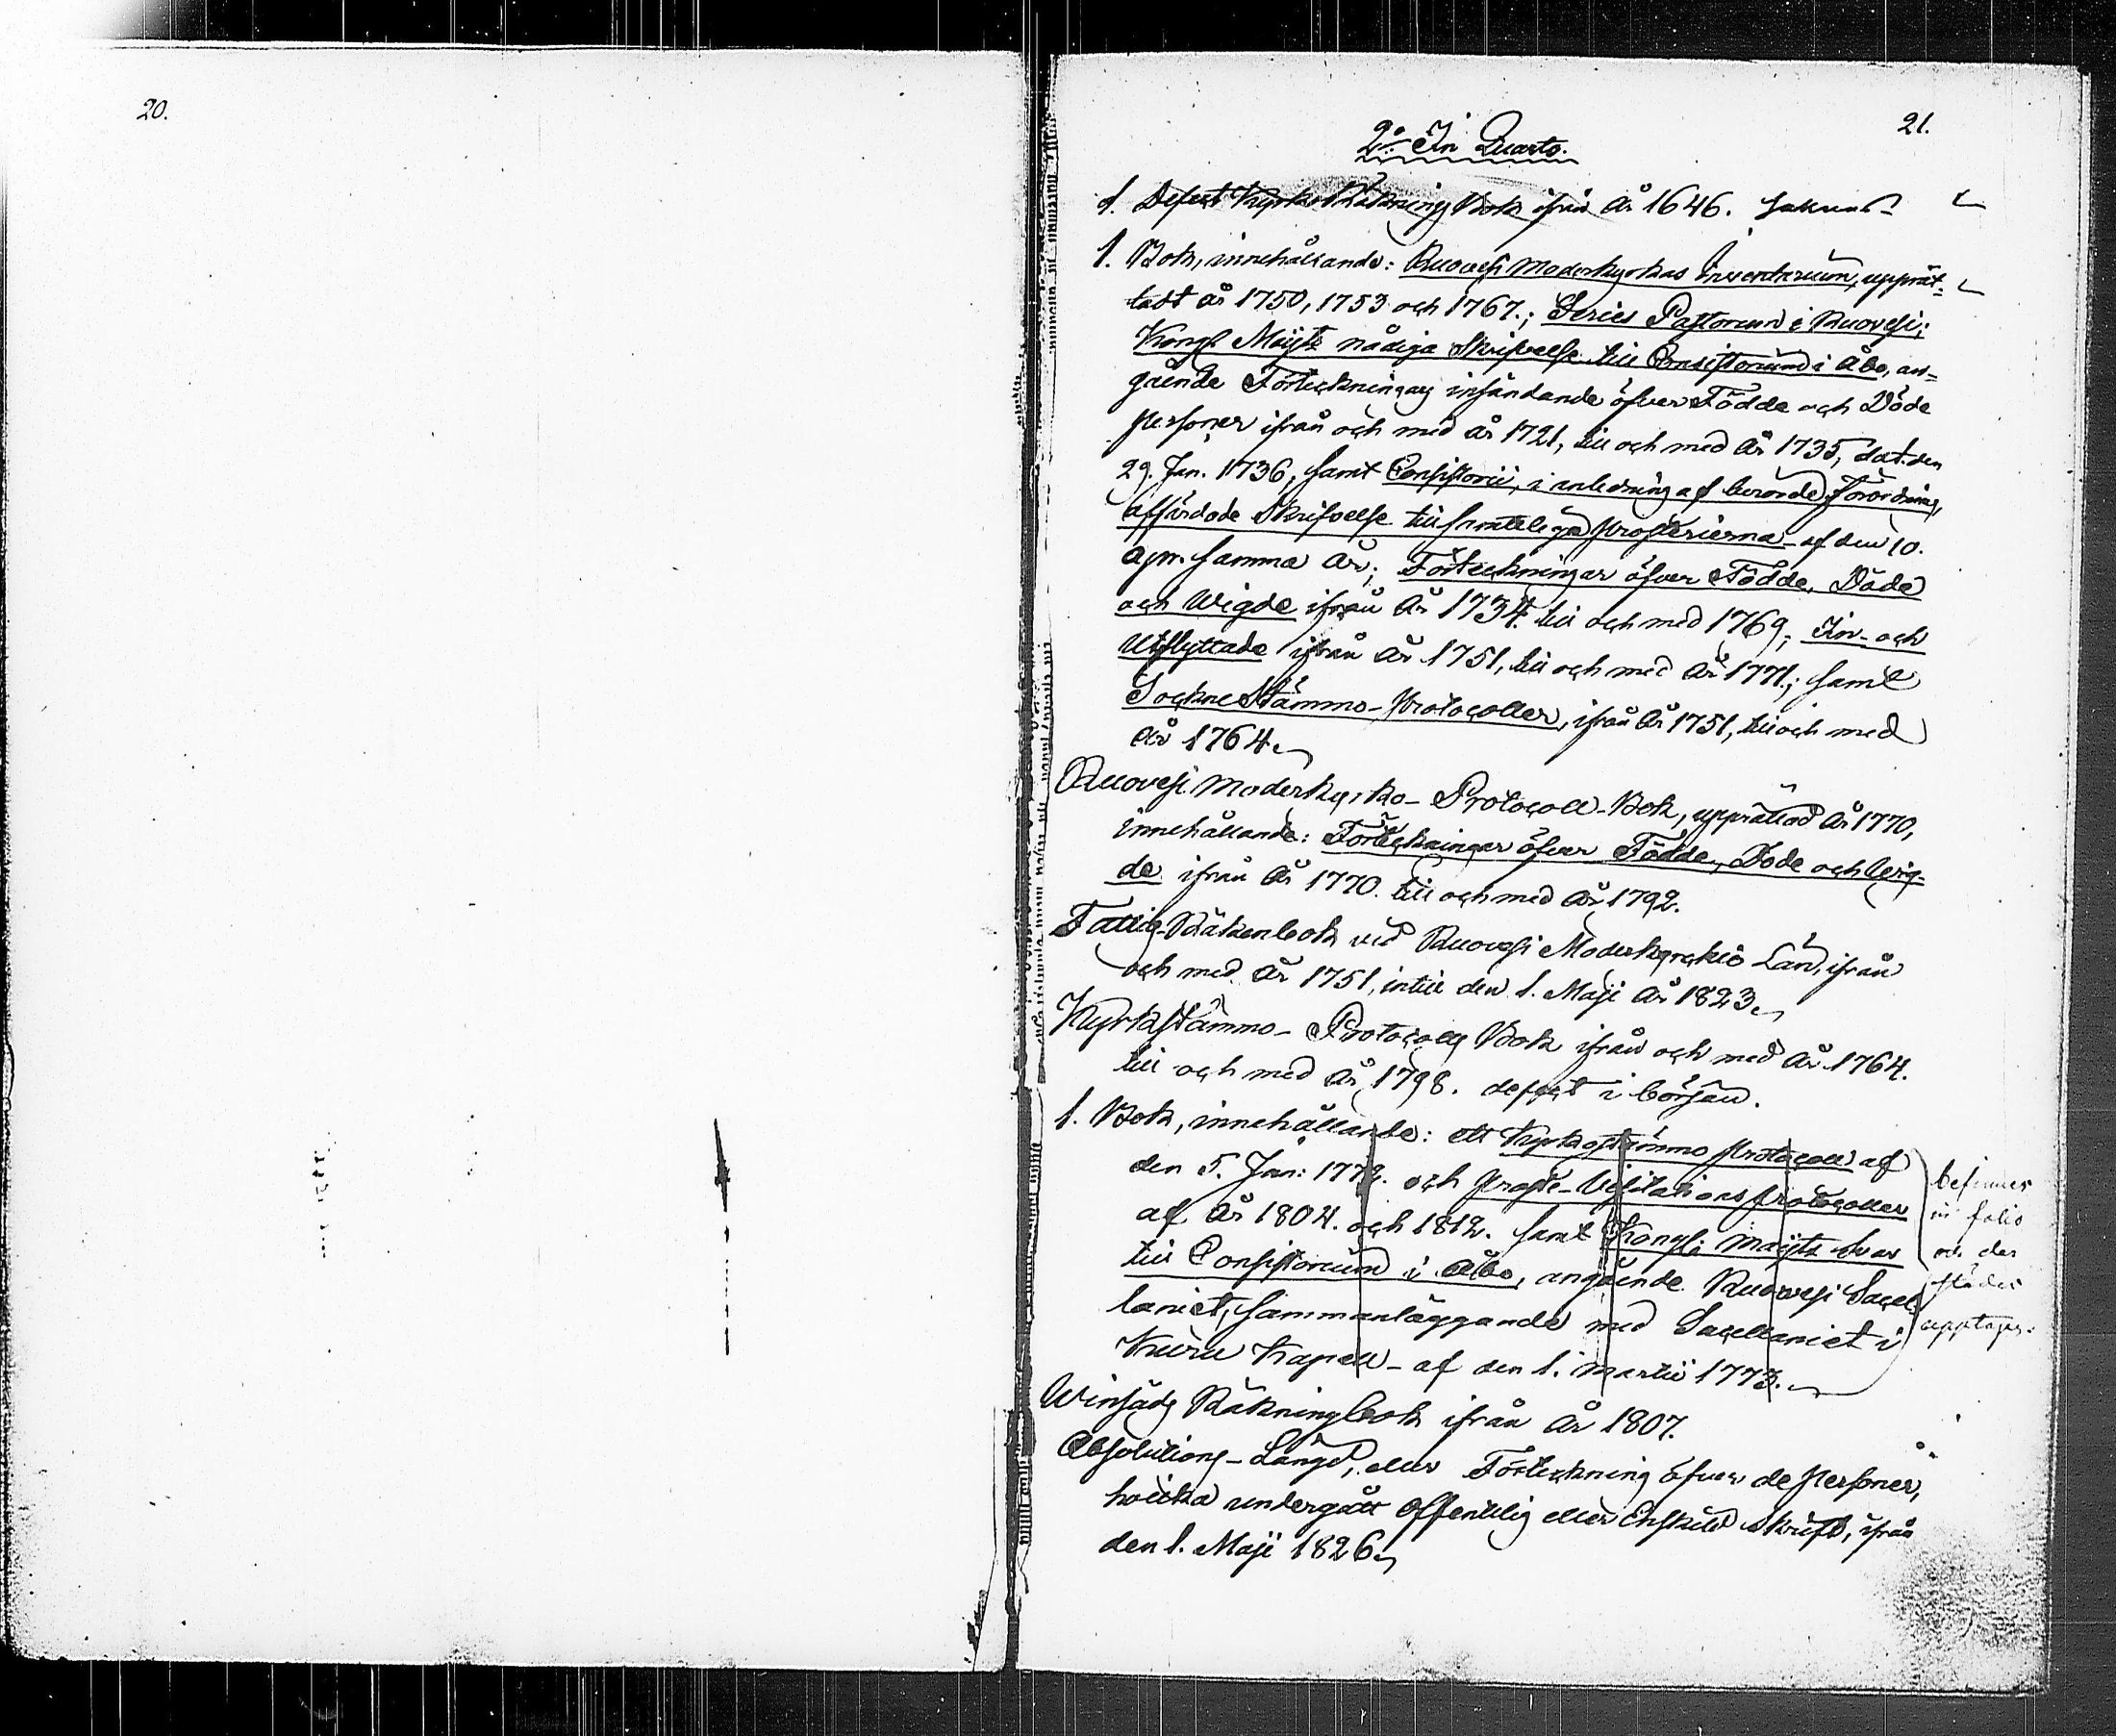 20.
21.
2:o In Quarto.
1. Defect Kyrko Räkning Bok ifrån år 1646. saknas
1. Bok, innehållande: Ruovesi Moderkyrkas Inventarium, upprät-
tadt år 1750, 1753 och 1767.; Series Pastorum i Ruovesi;
Kongl Maijts nådiga Skrifvelse till Consistorium i Åbo, an-
gående Förteckningars insändande öfver Födde och Döde
personer ifrån och med år 1721, till och med år 1735, dat. den
29. Jan. 1736, samt Consistorii, i anledning af berörde Förordning,
affärdade Skrifvelse till samtelige prosterierna af den 10.
apr. samma år; Förteckningar öfver Födde, Döde
och Wigde ifrån år 1734. till och med 1769; In- och
Utflyttade ifrån år 1751, till och med år 1771.; samt
SockneStämmo-Protocoller, ifrån år 1751, till och med
år 1764.
Ruovesi Moderkyrko-Protocoll-Bok, upprättad år 1770,
innehållande: Förteckningar öfver Födde, Döde och Wig-
de ifrån år 1770. till och med år 1792.
Fattig-Räkenbok vid Ruovesi Moderkyrkio Län, ifrån
och med år 1751, intill den 1. Maji år 1823.
Kyrkstämmo-Protocolls Bok ifrån och med år 1764.
till och med år 1798. defect i början.
1. Bok, innehållande: ett Kyrkostämmo protocoll af
den 5. Jan: 1772. och Prosts-Visitations protocoller
af år 1804. och 1812. samt Kongl: Maijts svar
till Consistorium i Åbo, angående Ruovesi Sacel-
laniet, sammanläggande med Sacellaniet i
Kuru Kapell - af den 1. Martii 1773.
befinnes
in folio
och der
städes
upptages.
Winsädz Räkningbok ifrån år 1807.
Absolutions-Längd, eller Förteckning öfver de personer,
hvilka undergått Offentelig eller Enskild Skrift, ifrån
den 1. Maji 1826.